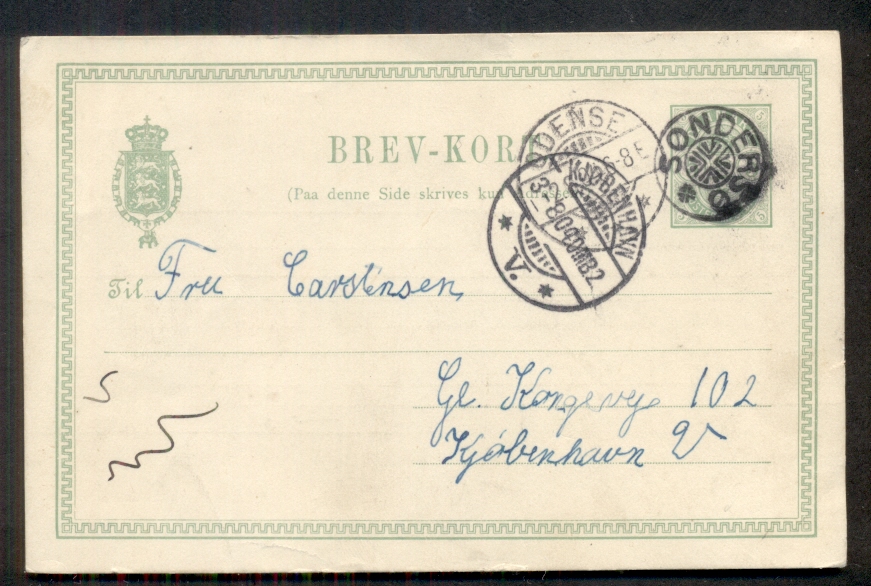 BREV-KORT
(Paa denne Side skrives kun Adressen)
ODENSE
6-8 E
SØNDERSØ
5
5
5
KJØBENHAVN
V.
Til Fru Carstensen,
Gl. Kongevej 102
Kjøbenhavn V
5